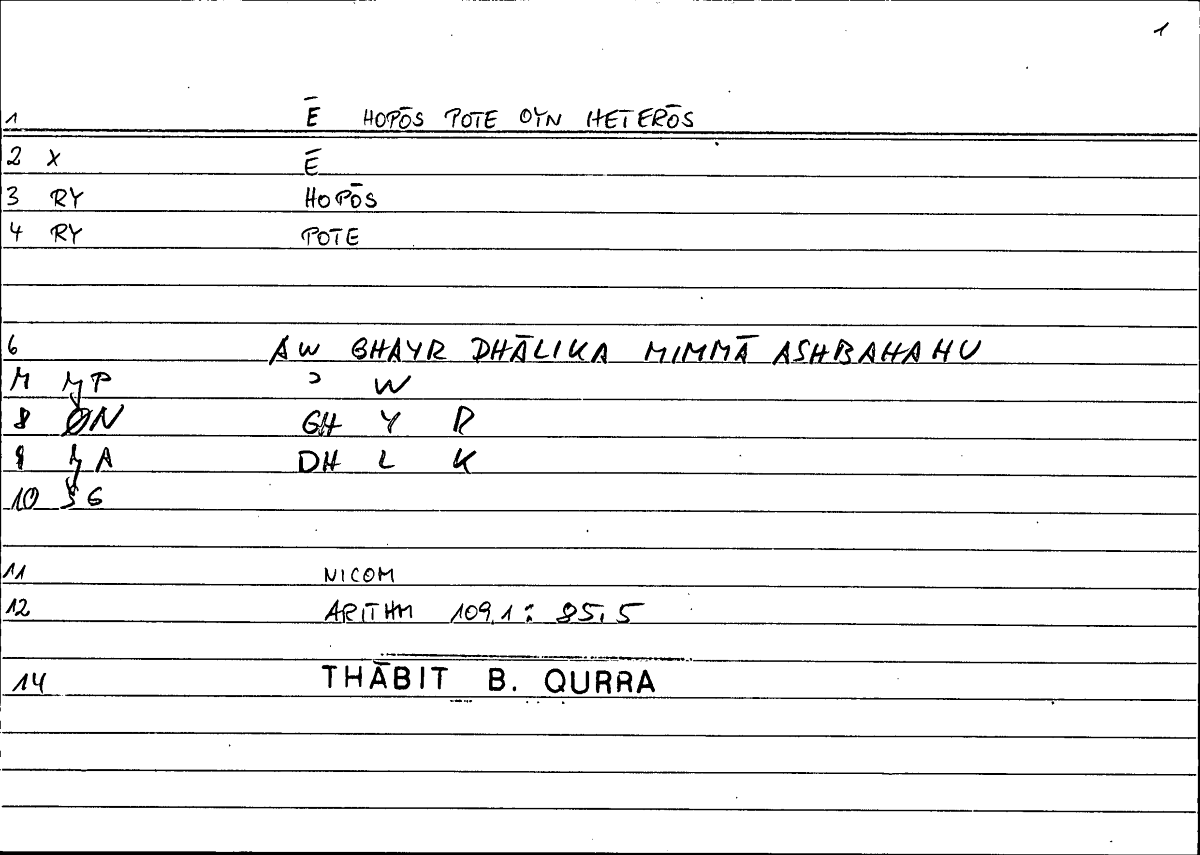 1
1 Ē HOPŌS POTE OYN HETERŌS
2 X Ē
3 RY HOPŌS
4 RY POTE
6 AW GHAYR DHĀLIKA MIMMĀ ASHBAHAHU
M MP ɔ W
8 ØN GH Y R
9 MA DH L K
10 SG
11 NICOM
12 ARITHM 109,1 : 85,5
14 THĀBIT B. QURRA